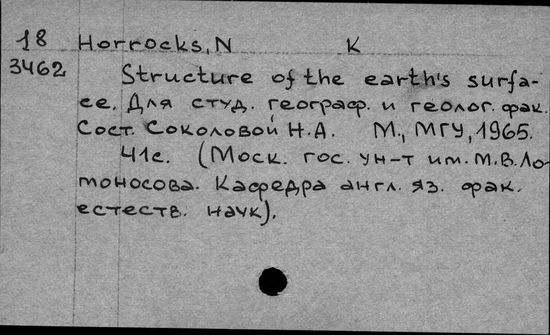 18 Horrocks, N K
3462 Structure of the earth's surfa-
ce. Для студ. географ. и геолог. фак.
Сост. Соколовой Н.А. М., МГУ, 1965.
41с. (Моск. гос. ун-т им. М.В. Ло-
моносова. Кафедра англ. яз. фак.
естеств. наук).